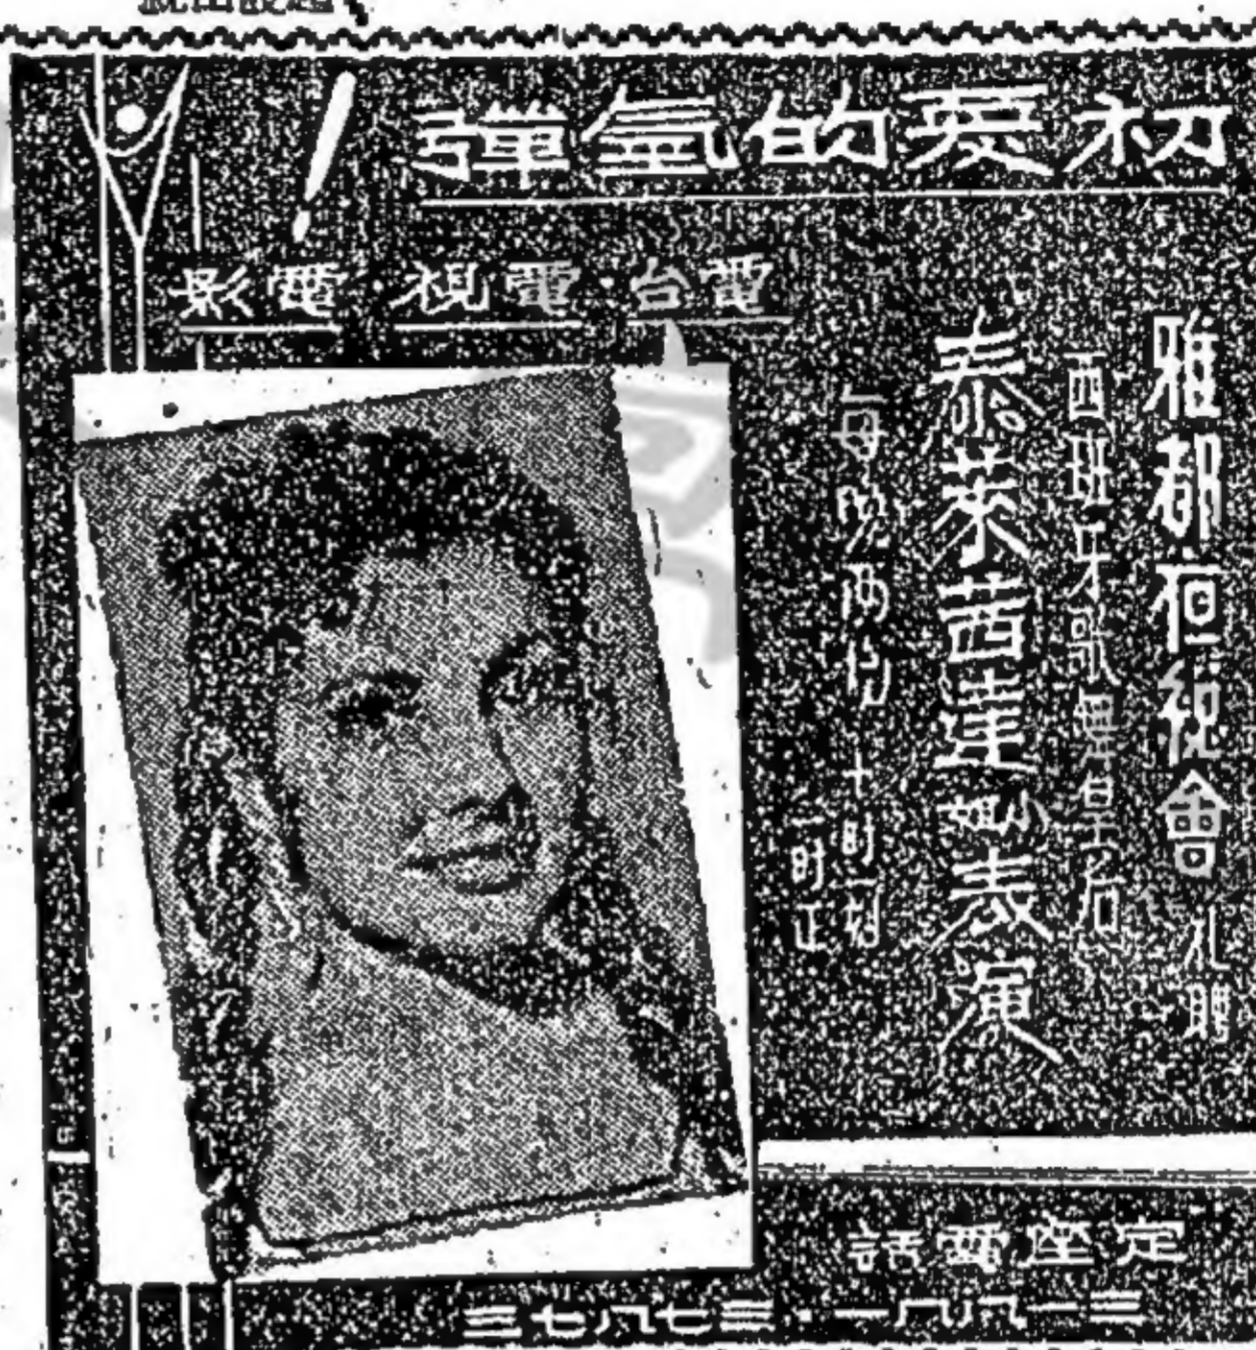 初戀的氫彈！
電台·電視·電影
雅都夜總會礼聘
西班牙歌舞皇后
泰萊茜達小姐表演
每晚兩均十時一刻
一时正
定座電話
三一八八一·三七八七三